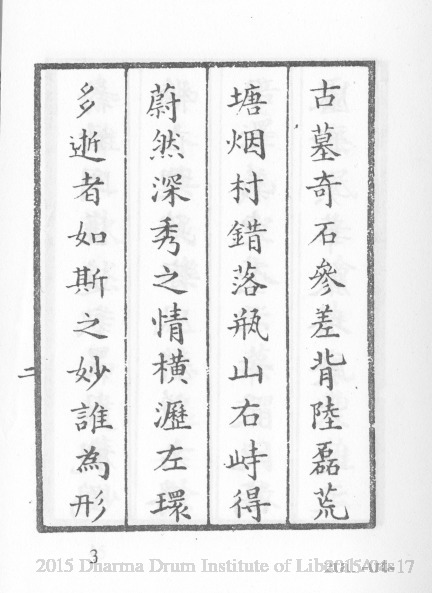 古墓奇石參差背陸磊荒
塘烟村錯落瓶山右峙得
蔚然深秀之情橫瀝左環
多逝者如斯之妙誰為形
二
3
2015 Dharma Drum Institute of Liberal Arts